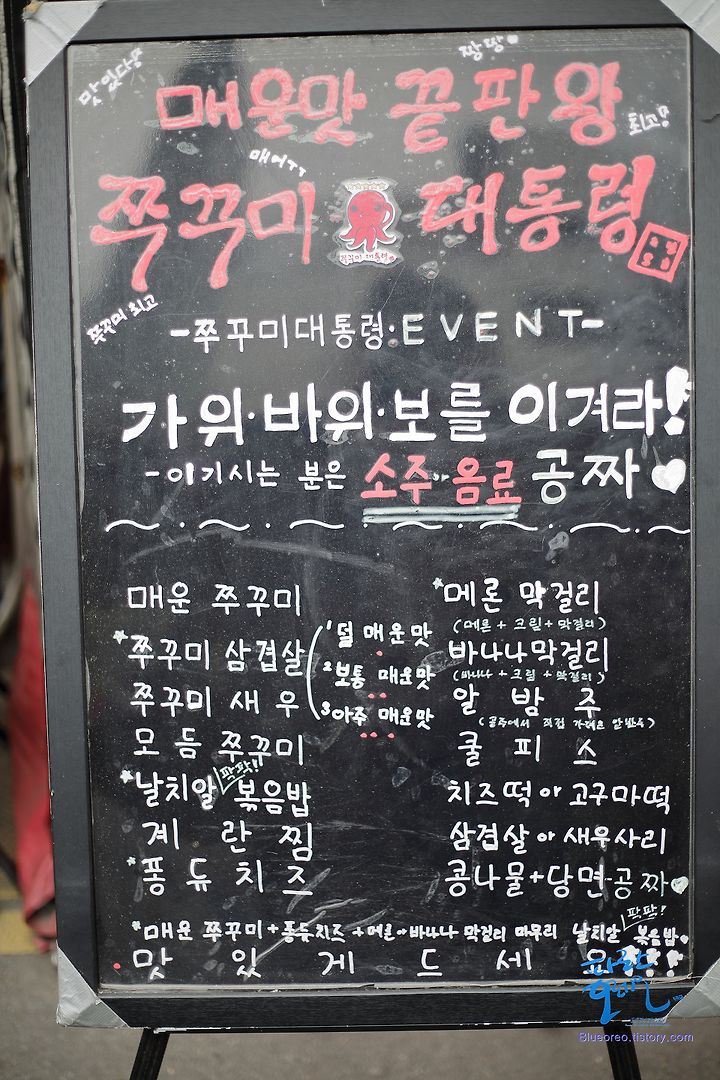 맛있다!
짱짱
매운맛 끝판왕
최고!
매어ㅜㅜ
쭈꾸미 대통령
쭈꾸미 대통령
쭈꾸미 최고
-쭈꾸미대통령·EVENT-
가위·바위·보를 이겨라!
-이기시는 분은 소주or음료 공짜♥
매운 쭈꾸미
*쭈꾸미 삼겹살
쭈꾸미 새우
모듬 쭈꾸미
*날치알 볶음밥
팍팍!!
계란찜
*퐁듀치즈
1 덜 매운맛
2 보통 매운맛
3 아주 매운맛
*메론 막걸리
(메론+크림+막걸리)
바나나막걸리
(바나나+크림+막걸리)
알밤주
(공주에서 직접 가져온 알밤주)
쿨피스
치즈떡 or 고구마떡
삼겹살 or 새우사리
콩나물+당면-공짜♥
팍팍!
*매운 쭈꾸미+퐁듀치즈+메론or바나나 막걸리 마무리 날치알 볶음밥
맛있게드세요!!!
파란오레오
Blueoreo.tistory.com